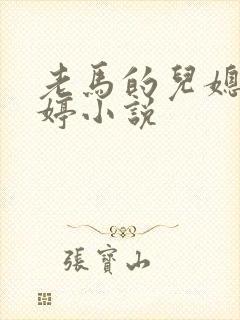 老馬的兒媳
婷小說
張寶山